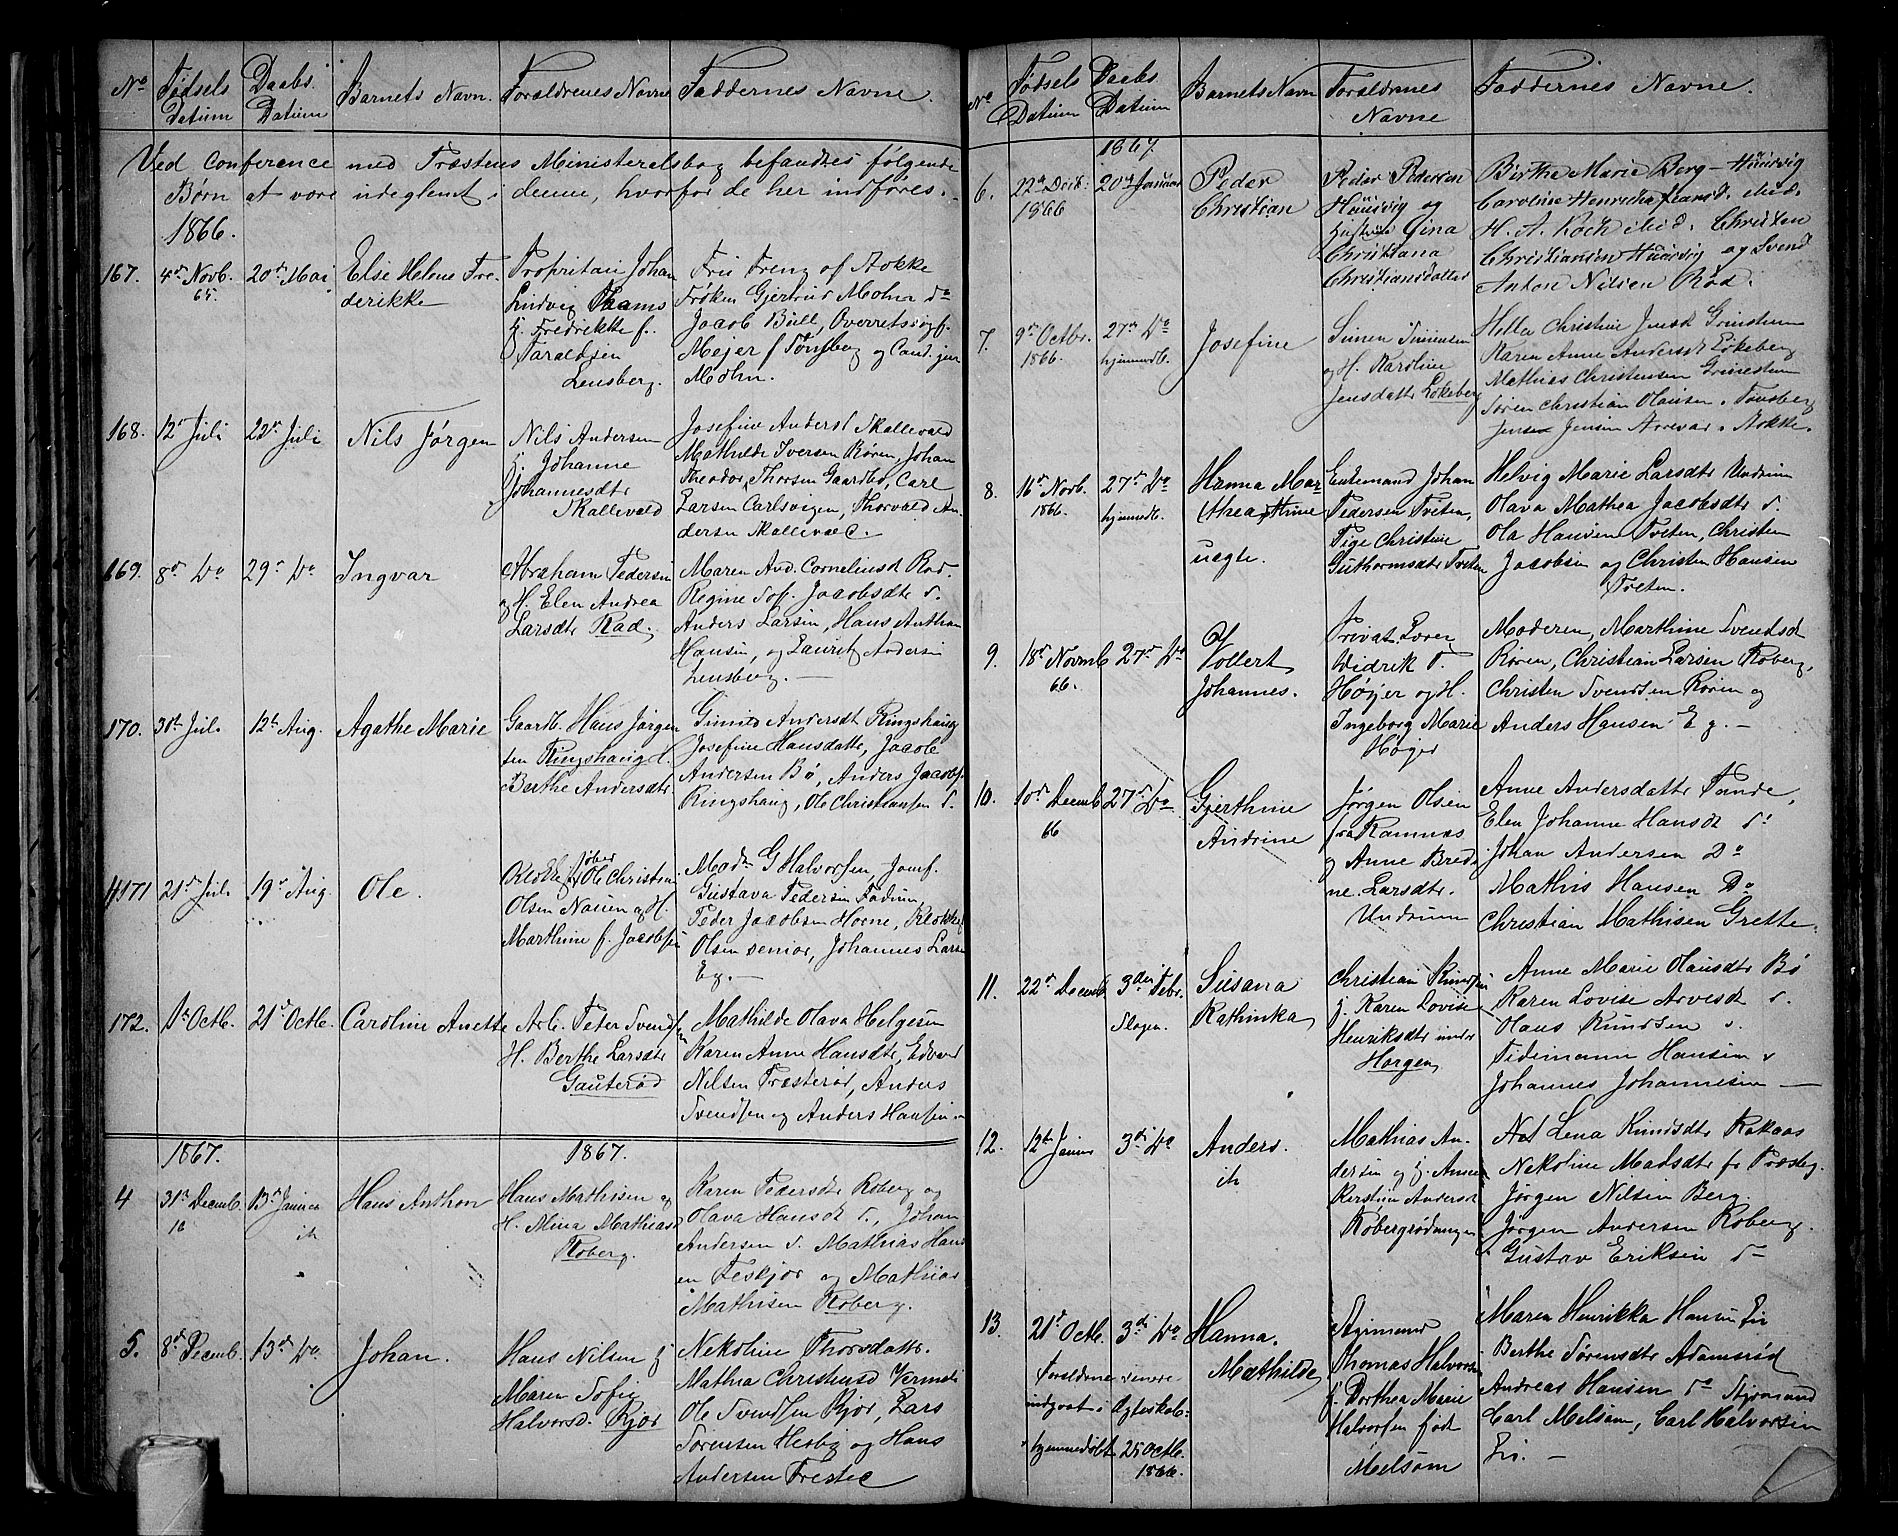 No
Fødsels Datum
Daabs Datum
Barnets Navn.
Forældrenes Navne
Faddernes Navne.
Ved Conference med Præstens Ministerialbog befandtes følgende
Børn at være udeglemt i denne, hvorfor de her indføres.
1866.
167.
4de Novb.
65.
20de Mai
Else Helene Fre-
derikke
Proprietair Johan
Ludvig Thams
Fredrikke f.
Taraldsen
Lensberg.
Frøken Gjertrud Mohn do
Jacob Bull, Overretssagf.
Mejer f Tønsberg og Cand. jur
Mohn.
168.
12te Juli
22de Juli
Nils Jørgen
Nils Andersen
Johanne
Johannesdtr
Skallevold
Josefine Andersd Skallevold
Mathilde Iversen Røren, Johan
Theodor Thorsen Gaardbo, Carl
Larsen Carlsvigen, Thorvald An-
dersen Skallevold.
169.
8de Do
29de Do
Ingvar
Abraham Pedersen
og H. Elen Andrea
Larsdtr Rød.
Maren And. Corneliusd Rød.
Regine Sof. Jacobsdtr
Anders Larsen, Hans Anthon
Hansen, og Lauritz Andersen
Lensberg.
170.
Juli
12te Aug.
Agathe Marie
Gaardb. Hans Jørgen
sen Ringshaug H.
Berthe Andersdtr
Andersdt Ringshaug
Josefine Hansdatter, Jacob
Andersen Bø, Anders Jacobs.
Ringshaug, Ole Christiansen
171
21de Juli
19de Aug.
Ole.
Ole Christian
Olsen Nauen og H.
Marthine f. Jacobsen
Mad. G Halvorsen, Jomf.
Gustava Pedersen
Peder Jacobsen Horne, Klokker
Olsen senior, Johannes Larsen
Eg.
172.
1ste Octb.
21de Octb.
Caroline Anette
Arb. Peter Svendsen
H. Berthe Larsdtr
Gauterød
Mathilde Olava Helgesen
Karen Anne Hansdtr, Edvard
Nilsen Præsterød, Anders
Svendsen og Anders Hansen
1867.
1867.
4
31te Decemb.
13de Januar
Hans Anthon
Hans Mathisen og
H. Mina Mathiasd
Roberg.
Karen Pedersdtr Roberg og
Olava Hansdt, Johan
Andersen Mathias Hans
en Feskjær og Mathias
Mathisen Roberg.
5.
8de Decemb.
13de Do
Johan.
Hans Nilsen
Maren Sofie
Halvorsd. Kjær
Nekoline Thorsdatter.
Mathea Christensd
Ole Svendsen Kjær, Lars
Sørensen Hesby og Hans
Andersen
No
Fødsels Datum
Daabs Datum
Barnets Navn
Forældrenes
Navne
Faddernes Navne.
1867.
6.
22de Decb.
1866
20de Januar
Peder
Christian
Peder Pedersen
Huusvig og
Hustru Gina
Christiana
Christiansdatter
Birthe Marie Berg Huusvig
Caroline Henrikka
H. A. Koch Christen
Christiansen Huusvig og Svend
Anton Nilsen Rød.
7.
9de Octbr.
1866.
27de Do
hjemmedb.
Josefine
Simen Simensen
og H. Karoline
Jensdatter Løkeberg
Helle Christine Jensd Grimestum
Karen Anne Andersdt Løkeberg
Mathias Christensen Grimestum
Søren Christian Olausen. Tønsberg
Jensen Jensen
8.
16de Novb.
1866.
27de Do
hjemmedb.
Hanna Mar
thea
uegte.
Enkemand Johan
Pedersen Tveten,
Pige Christine
Guthormsdtr Tveten
Helvig Marie Larsdtr Undrum
Olava Mathea Jacobsdtr
Ola Hansen Tveten, Christen
Jacobsen og Christen Hansen
Tveten.
9.
18de Novmb
66.
27de Do
Vollert
Johannes.
Høyer og H.
Ingeborg Marie
Høyer
Moderen, Marthine Svendsd
Røren, Christian Larsen Roberg,
Christen Svendsen Røren og
Anders Hansen Eg.
10.
10de Decemb
66
27de Do
Gjerthine
Andrine
Jørgen Olsen
fra Ramnæs
og Anne Bredi
ne Larsdtr.
Undrum
Anne Andersdatter Sande,
Elen Johanne Hansdt
Johan Andersen Do
Mathis Hansen Do
Christian Mathisen Grette.
11.
22de Decemb
3die Febr.
Slagen.
Susana
Kathinka
Christian Knudsen
Karen Lovise
Henriksdtr under
Horgen
Anne Marie Olausdtr Bø
Karen Lovise Arvesdt
Olaus Knudsen
Tidemann Hansen
Johannes Johannesen
12.
12te Januar
3die Do
Anders.
Mathias An-
dersen og Anne
Kerstine Andersd
Robergrødningen
Lena Knudsdtr Rakaas
Nekoline Madsdtr
Jørgen Nilsen Berg.
Jørgen Andersen Roberg.
Gustav Eriksen
13.
21de Octb.
3die Do
Forældrene senere
indgaaet i Ægteskab.
hjemmedøbt 25 Octb.
1866.
Hanna
Mathilde
Thomas Halvorsen
Dorthea Marie
Halvorsen født
Melsom
Maren Henrikka Hansen
Berthe Sørensdtr Adamsrød
Andreas Hansen do Styrmand
Carl Melsom, Carl Halvorsen